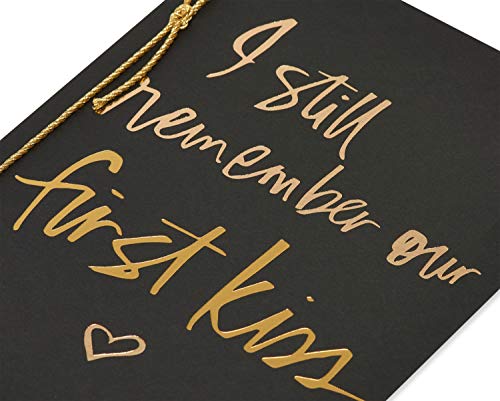 I still
remember our
first kiss